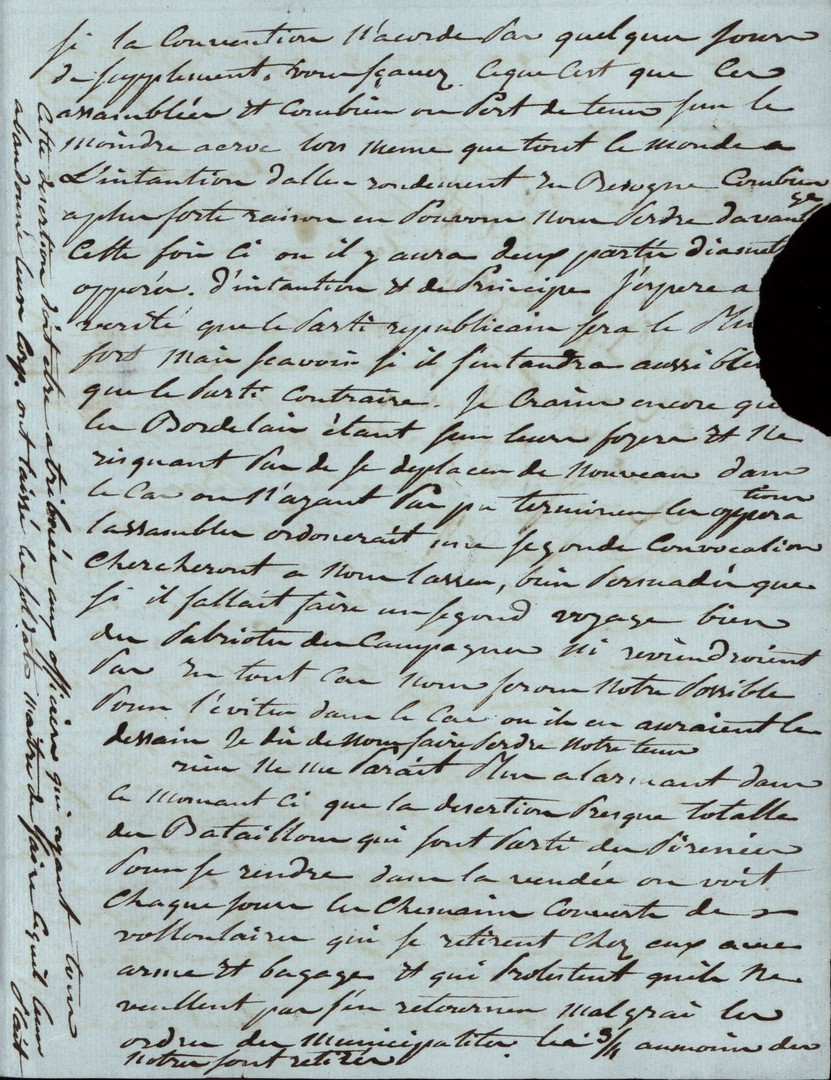 si la Convention n'acorde Pas quelques jours
de supplement. vous sçavez ceque c'est que Ces
assemblées et combien on Perd de tems sur le
moindre acroc lors meme que tout le monde a
L'intantion daller rondement En Besogne Combien
a plus forte raison en Pouvons nous Perdre davantage
Cette fois ci ou il y aura deux partis diamet
opposés. d'intantion et de Principe J'espere a
verité que le Parti republicain sera le Plu
fort mais scavoir si il s'intandra aussi bien
que le Parti Contraire. Je Crains encore que
les Bordelais étant sur leurs foyers et ne
risquant Pas de se deplacer de nouveau dans
le Cas ou n'ayant Pas pu terminer les oppera tions
lassamblée ordonerait une segonde Convocation
Chercheront a nous lasser, bien Persuadés que
si il fallait faire un segond voyage bien
des Patriotes des Campagnes ni reviendroient
Pas En tout Cas nous ferons notre Possible
Pour l'éviter dans le Cas ou ils en auraient le
dessain Je dis de nous faire Perdre notre tems
rien ne me Parait Plus alarmant dans
ce momant ci que la desertion Presque totalle
des Bataillons qui sont Parti des Pirenées
Pour se rendre dans la vendée on voit
Chaque jour les Chemains Couverts de
vollontaires qui se retirent Chez eux avec
arme et bagage et qui Protestent quils ne
veullent pas s'en retourner malgrai les
ordres des municipalites les 3/4 aumoins des
notres sont retirés
Cette desertion doit etre atribuée aux officiers qui ayant tous
abandonné leurs Corps ont laissé les soldats maitres de faire cequil leurs
Plait